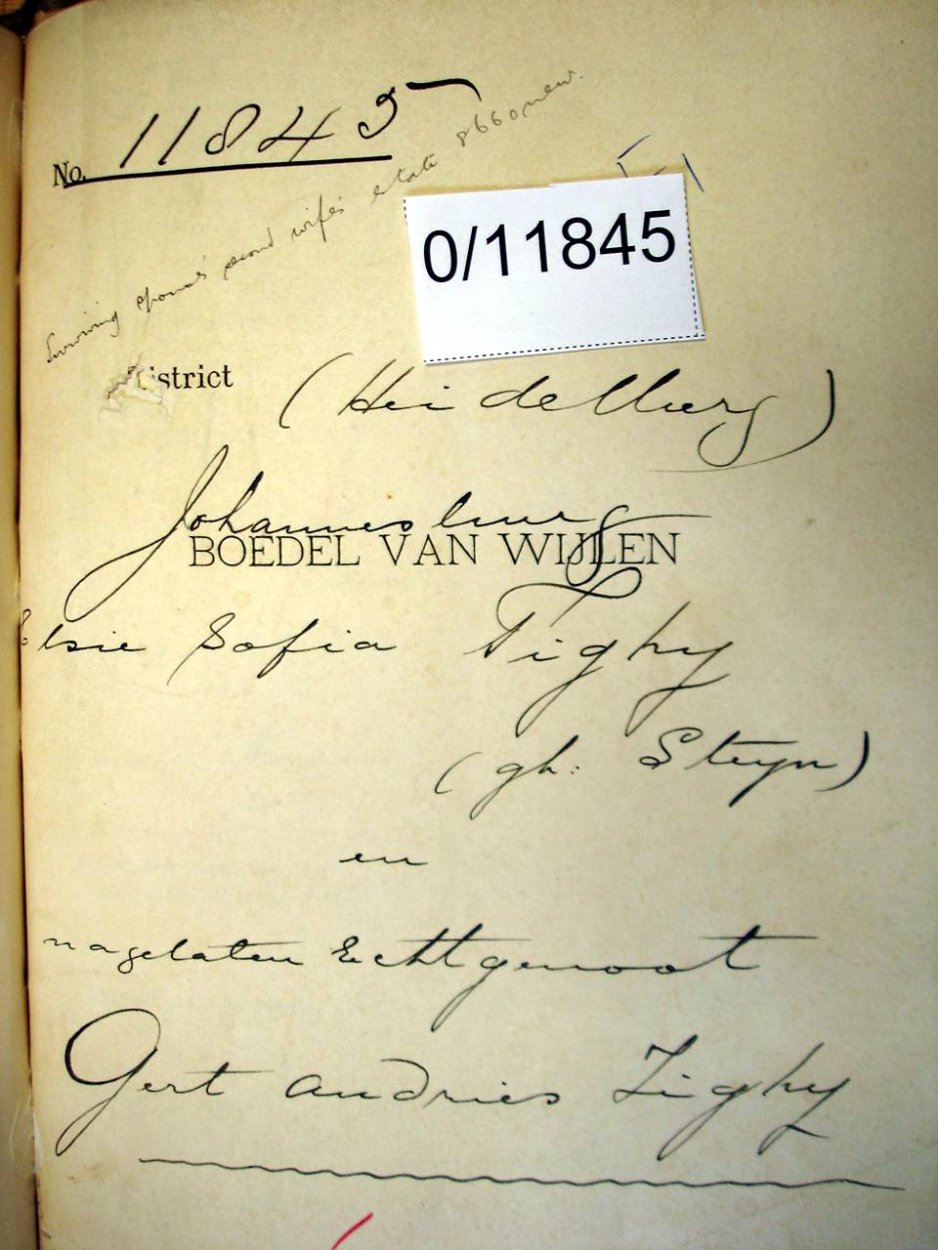 No. 11845
Surviving spouse's second wife's estate 8660 new.
0/11845
District (Heidelburg)
Johannesburg
BOEDEL VAN WIJLEN
Elsie Sofia Tighy
(gb: Steyn)
en
nagelaten Echtgenoot
Gert Andries Tighy